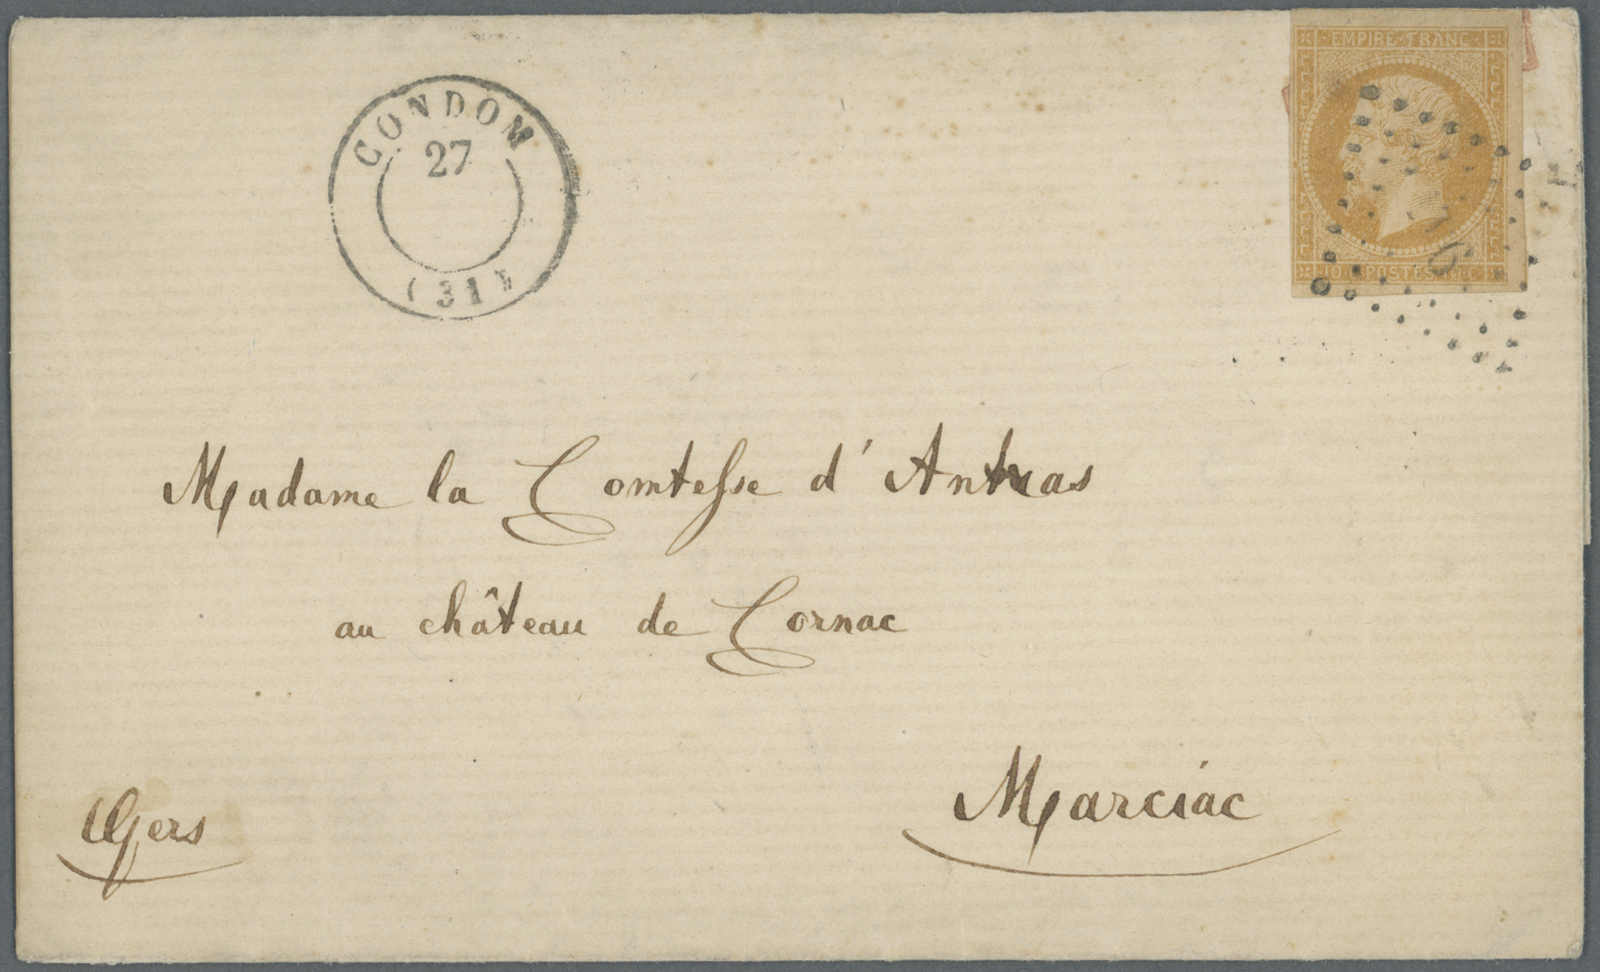 CONDOM
27
(31)
EMPIRE FRANC
10 C POSTES 10 C
Madame la Comtesse d'Antras
au château de Cornac
Marciac
Gers